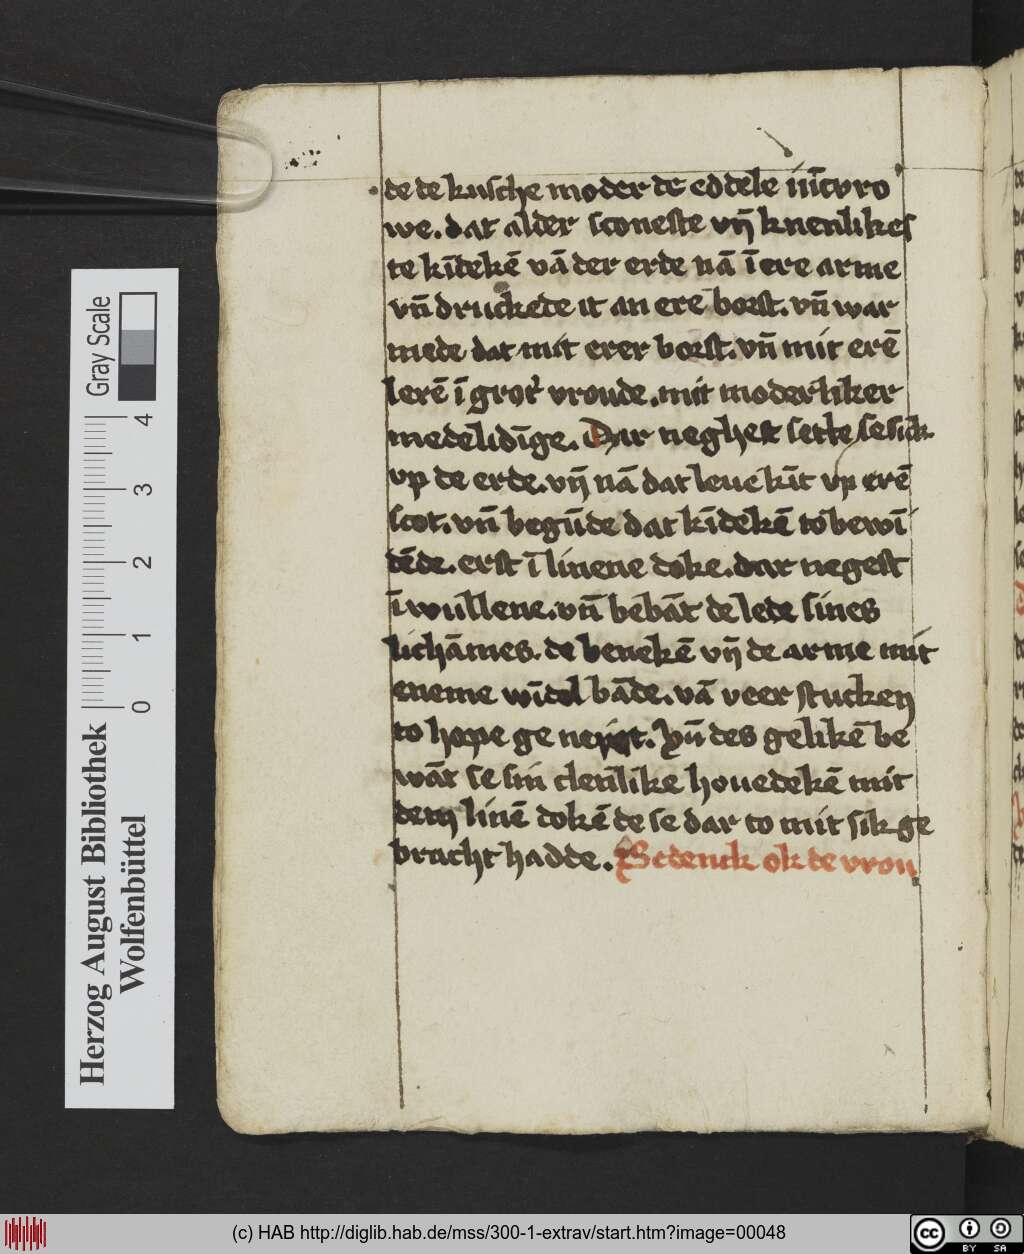 de de kusche moder de eddele iūcvro
we. dat alder sconeste vn̄ knenlikes
te kīdekē vā der erde nā ī ere arme
vn̄ druckede it an erē borst. vn̄ war
mede dat mit erer borst. vn̄ mit erē
lerē ī grot' vroude. mit moderliker
medelidīge. Dar neghest sette se sick
vp de erde. vn̄ nā dat leue kīt vp erē
scot. vn̄ begūde dat kīdekē to bewī
dēde. erst ī linene doke. dar negest
ī wullene. vn̄ bebāt de lede sines
lichāmes. de benekē vn̄ de arme mit
eneme wīdel bāde. vā veer stucken
to hope ge neyet. Vn̄ des gelikē be
wāt se sin clenlike houedekē mit
dem linē dokē de se dar to mit sik ge
bracht hadde. Bedenck ok de vrou
Gray Scale
4
3
2
1
0
Herzog August Bibliothek
Wolfenbüttel
(c) HAB http://diglib.hab.de/mss/300-1-extrav/start.htm?image=00048
cc BY SA